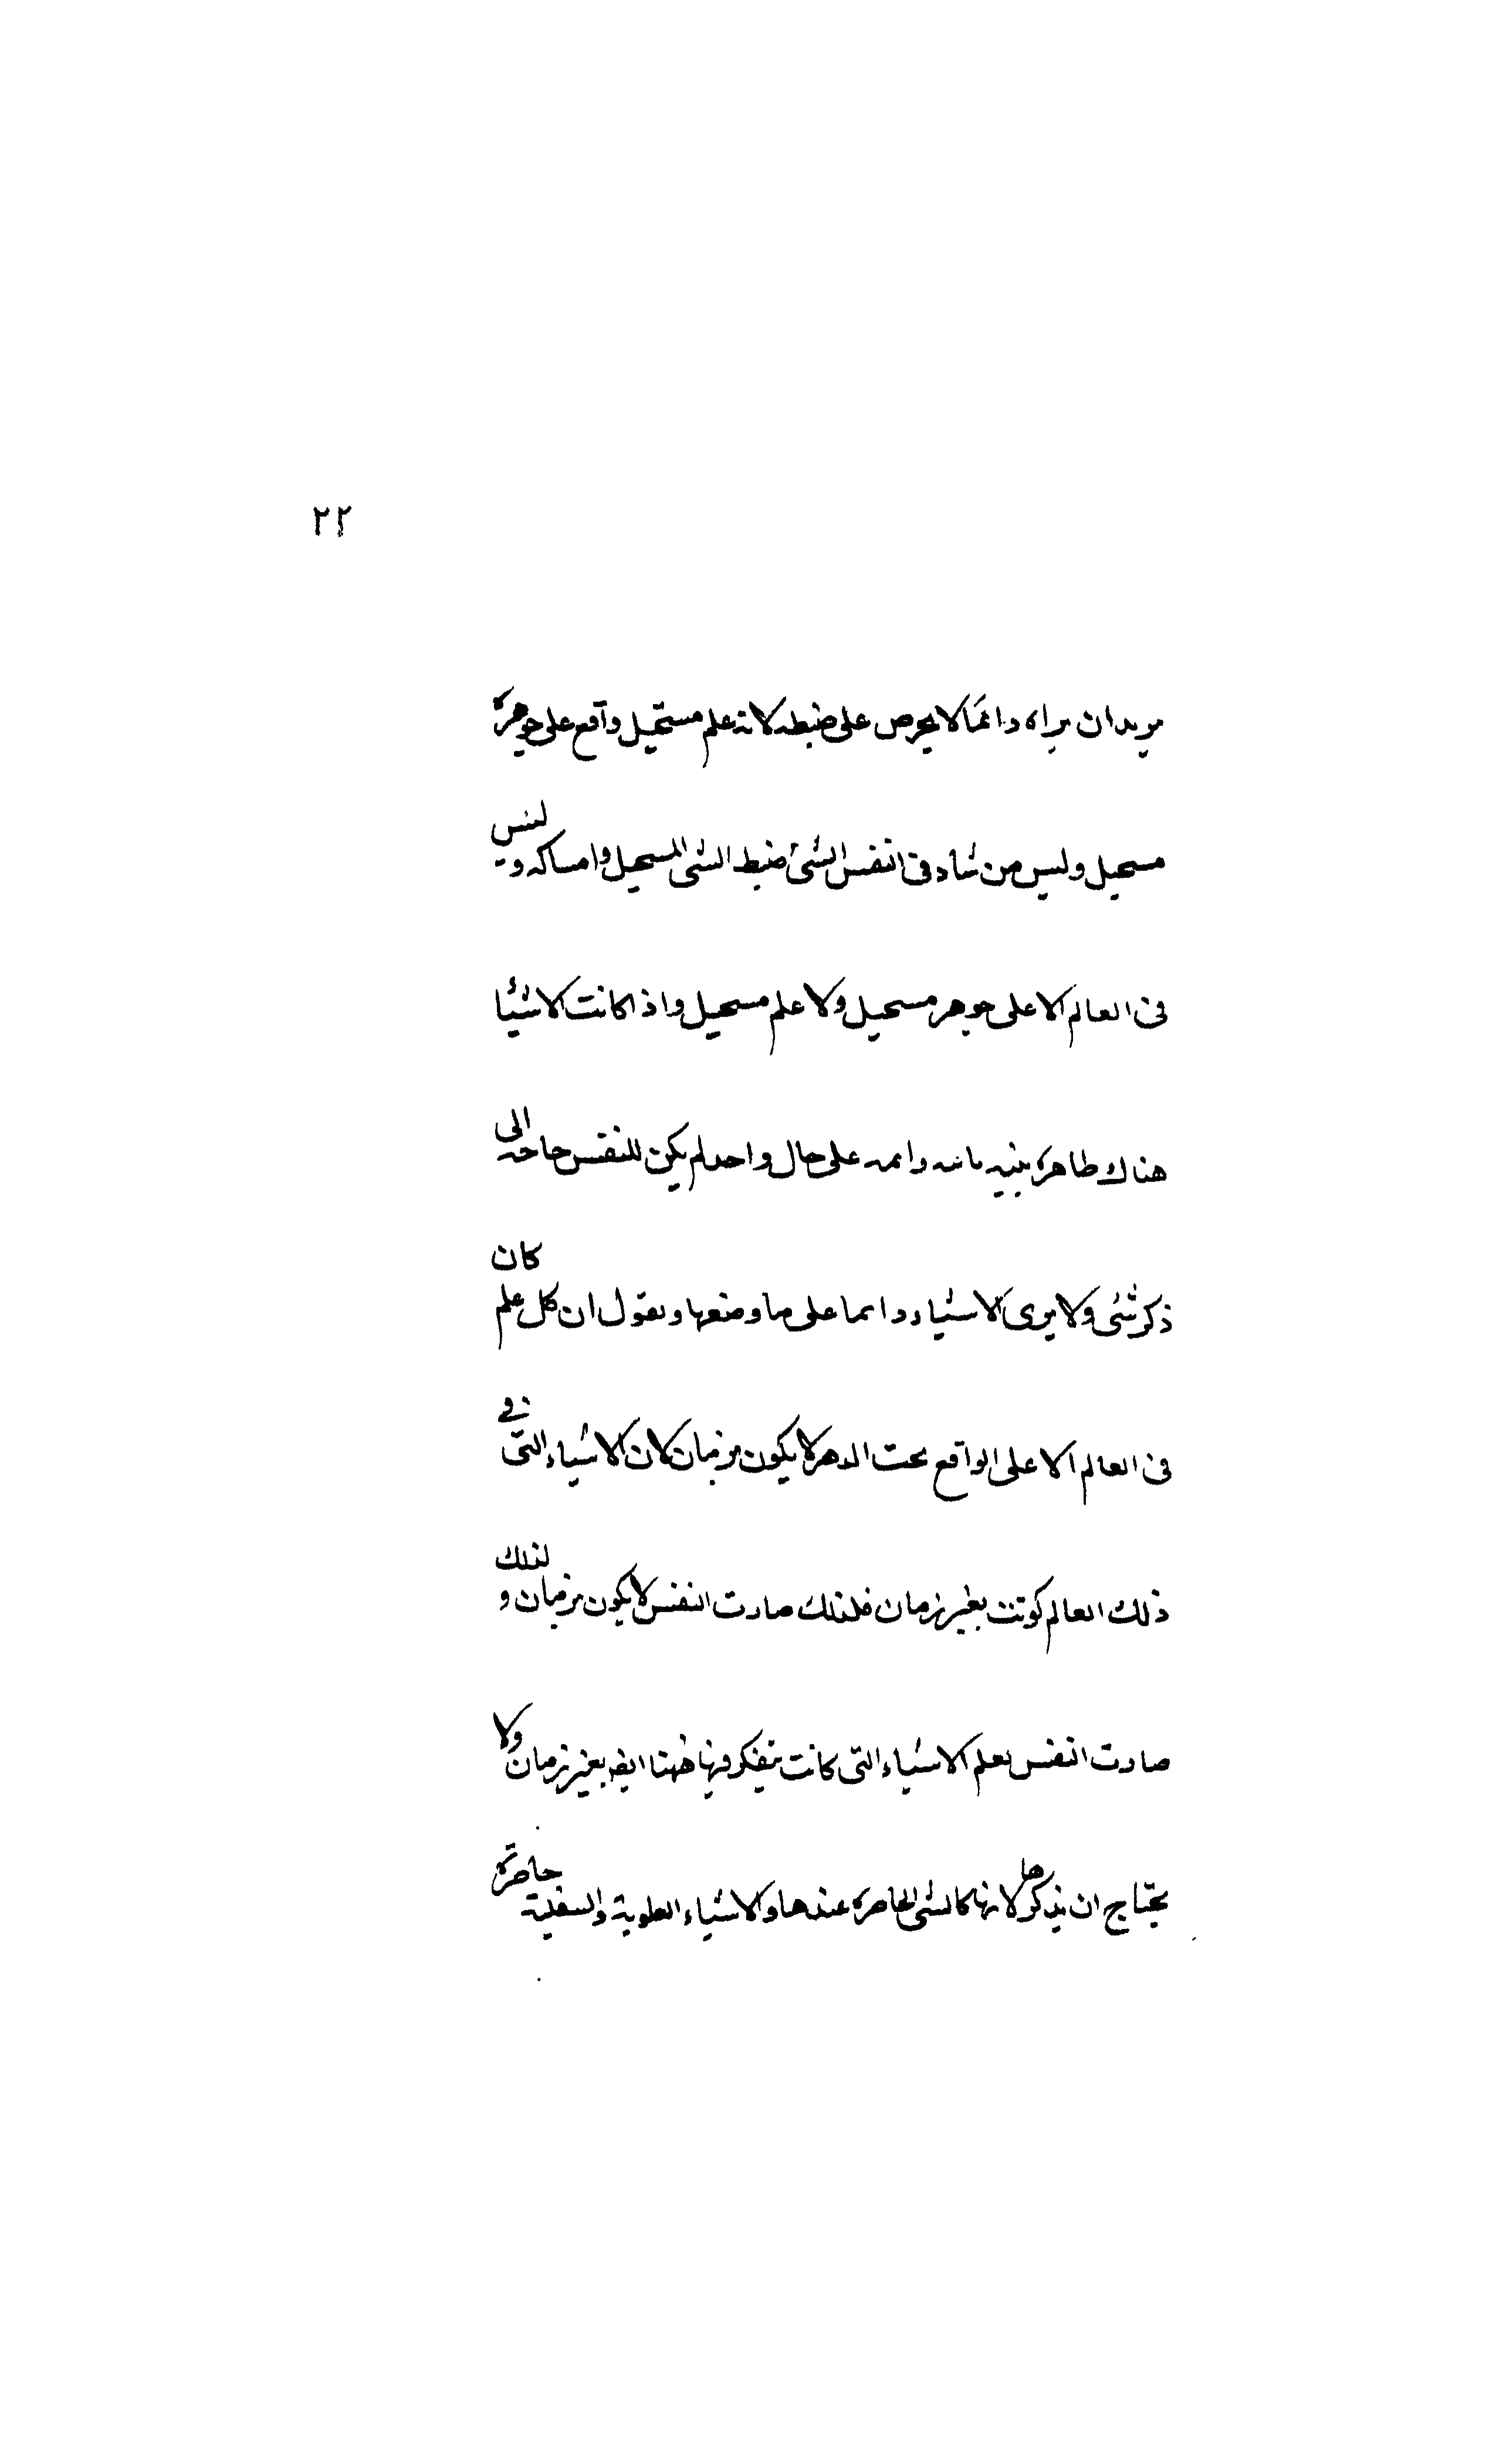 ٢٢
يريد ان يراه دائما لا يحرص على ضبطه لانه علم مستحيل واقع على جوهرة
مستحيل وليس من شاد في النفس الشئ ضبط الشي المستحيل وامساكه وليس
في العالم الاعلى جوهر مستحيل ولا علم مستحيل واذا كانت الاشيا
هناك ظاهرة بينه ثابته دائمه على حال واحد لم يكن للنفس حاجه الى
ذكر شئ ولا يرى الاشياء دائما على ما وضعها ونقول ان كل علم كان
في العالم الاعلى الواقع تحت الدهر لا يكون بزمان لان الاشياء التي في
ذلك العالم كونت بغير زمان فلذلك صارت النفس لا يكون بزمان و لذلك
صارت النفس تعلم الاشياء التي كانت يتفكر فيها ههنا ايضا بغير زمان ولا
يحتاج ان يذكرها لانها كالشي الحاضرة عندها والاشياء العلوية والسفلية حاضرة